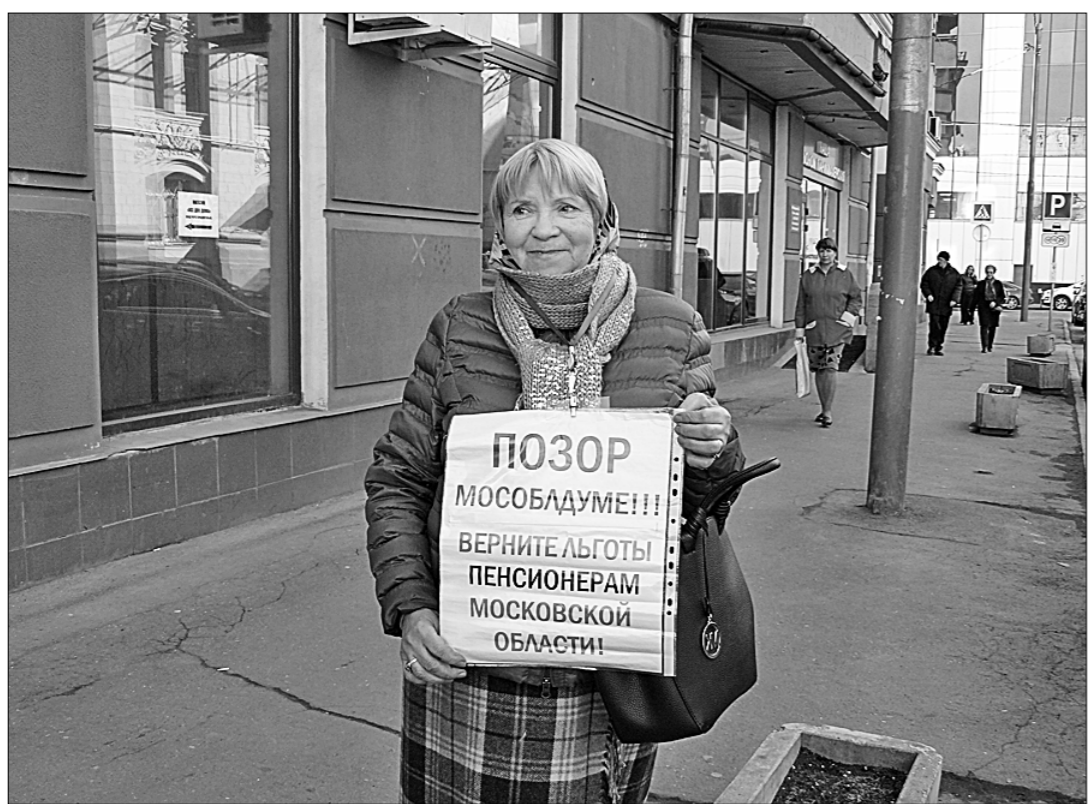 ПОЗОР
МОСОБЛДУМЕ!!!
ВЕРНИТЕ ЛЬГОТЫ
ПЕНСИОНЕРАМ
МОСКОВСКОЙ
ОБЛАСТИ!
P